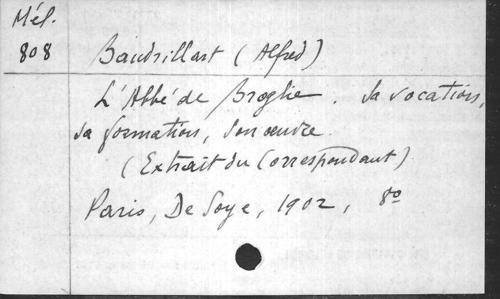 Mél.
808
Baudrillart (Alfred)
L'Abbé de Broglie. Sa vocation,
sa formation, son œuvre.
(Extrait du Correspondant).
Paris, De Soye, 1902, 8º